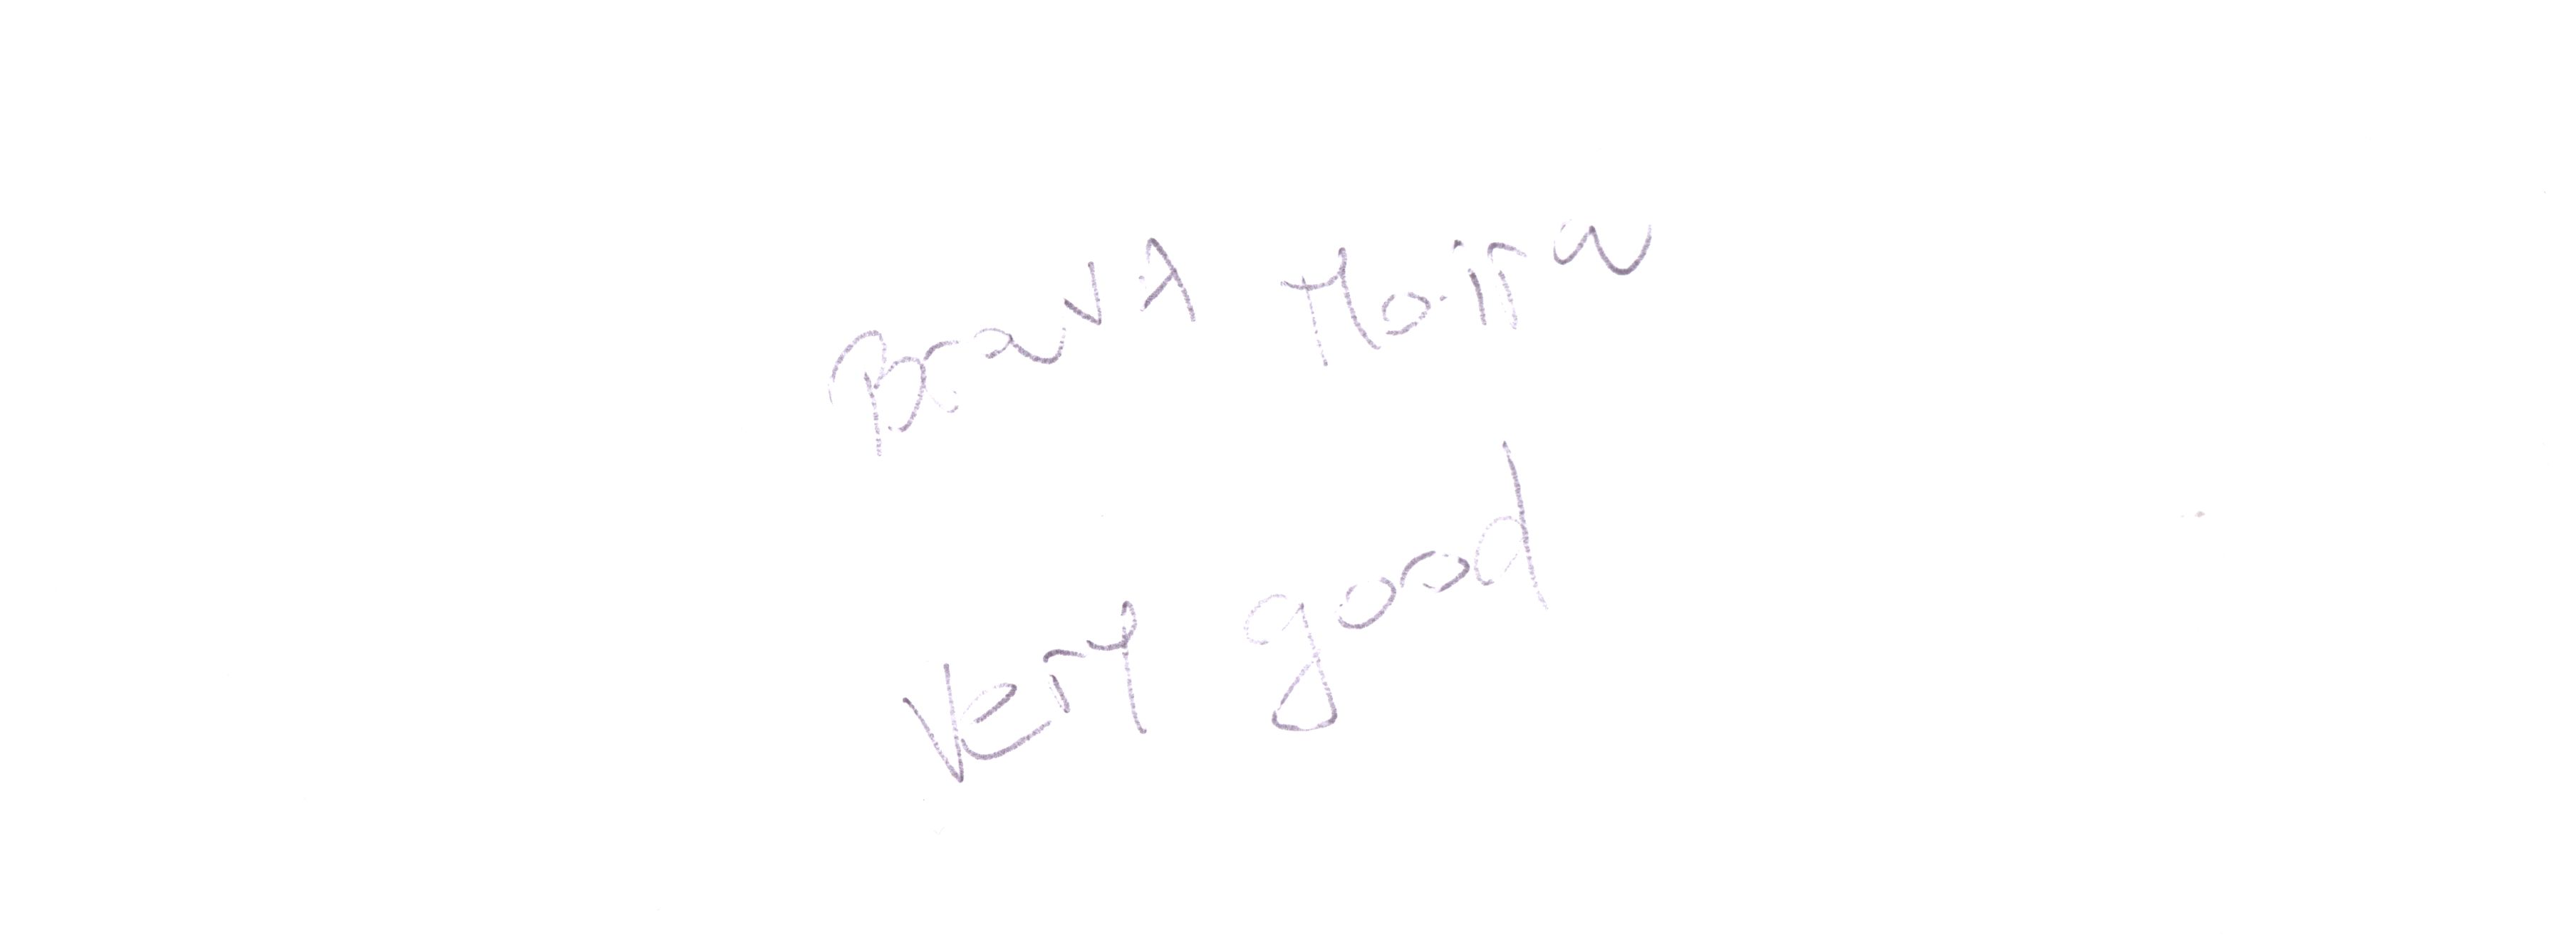 Brava Moira
Very good